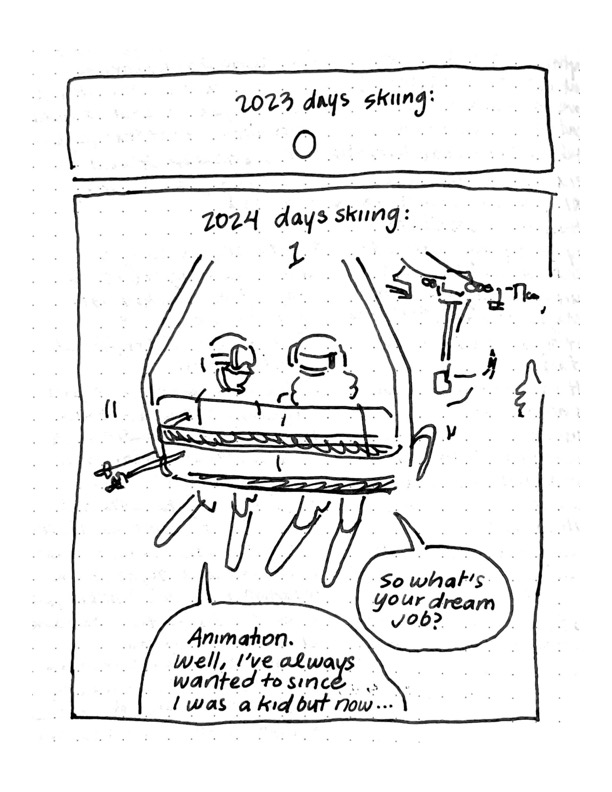 2023 days skiing:
0
2024 days skiing:
1
So what's
your dream
job?
Animation.
Well, I've always
wanted to since
I was a kid but now...